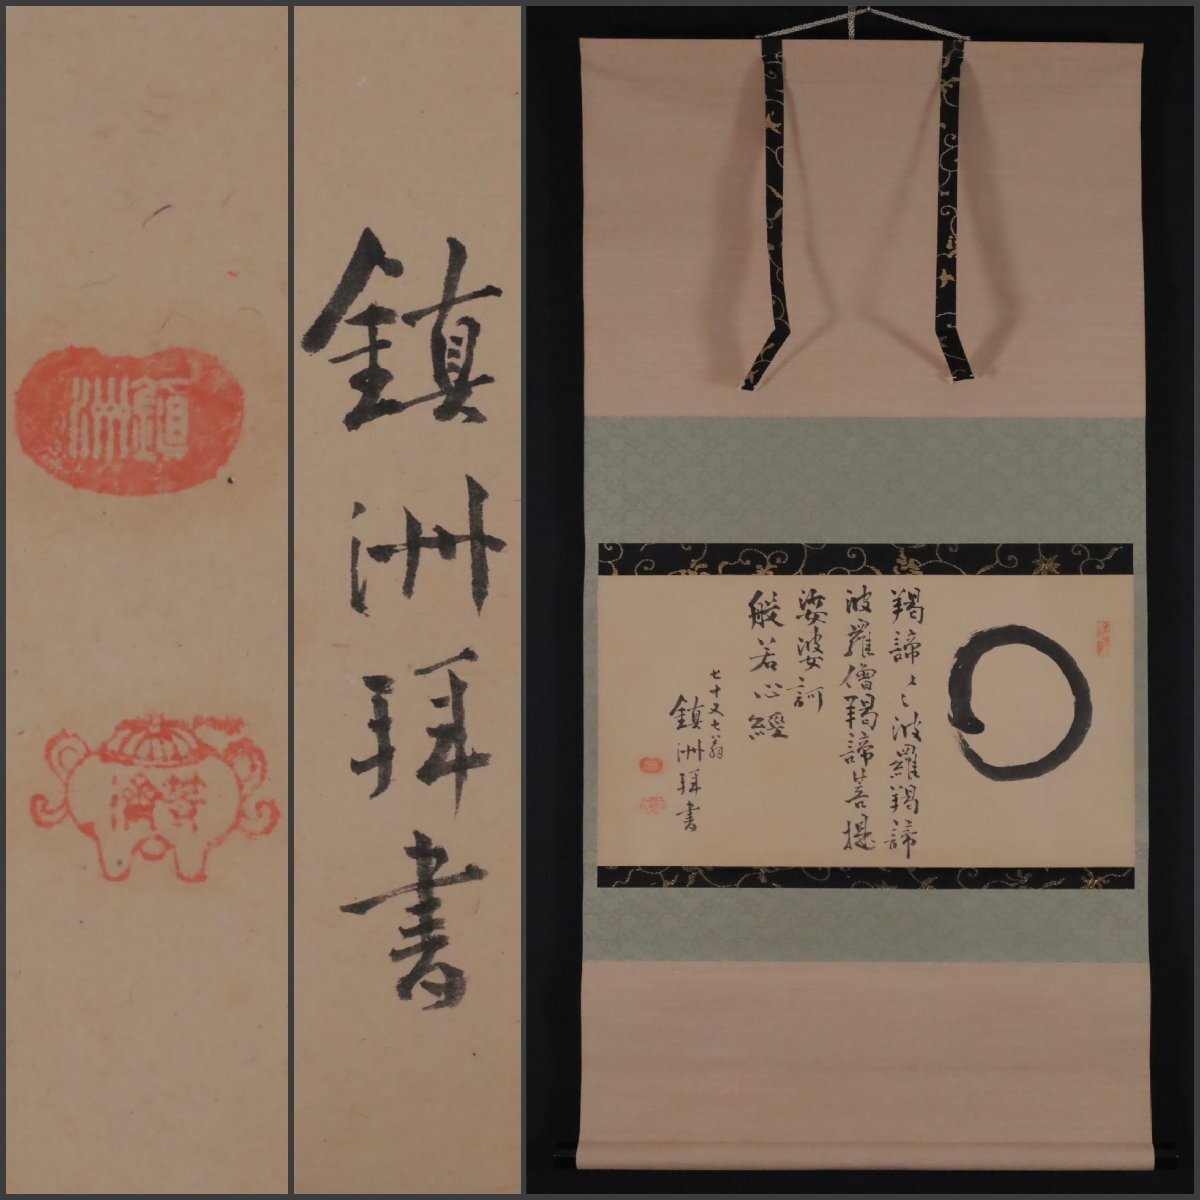 鎮洲
鎮洲拜書
羯諦〻波羅羯諦
波羅僧羯諦菩提
娑婆訶
般若心經
七十又七翁
鎮洲拜書